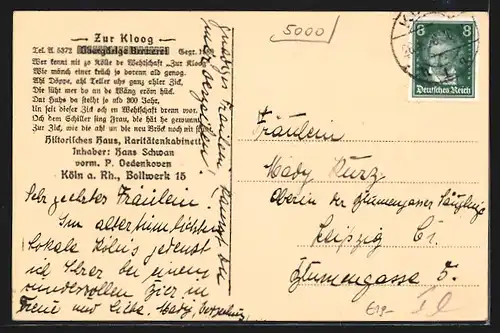 Zur Kloog
Tel. A 5372 Obergärige Brauerei Gegr. 16
Wer kennt nit zo Kölle de Wehtschaff „Zur Kloog“
Wie mönch einer kräch jo doran ald genog.
Ahl Döppe, ahl Teller uhs ganz alder Zick,
Die süht mer do an de Wäng eröm höck.
Dat Huhs da steiht jo ald 300 Johr,
Un seit dieser Zick och en Wehtschaff dren wor.
Och dem Schiller sing Frau, die hät he gewonnt
Zur Zick, wie die ahl un die neu Bröck noch nit
Historisches Haus, Raritätenkabinett
Inhaber: Hans Schwan
vorm. P. Oedenkoven
Köln a. Rh., Bollwerk 15
Sehr geehrtes Fräulein.
Im altertümlichsten
Lokale Kölns gedenkt
ich Ihrer bei einem
wundervollen Bier in
Treue und Liebe. Mady,
gnädiges Fräulein,
5000
8 8
Deutsches Reich
Fräulein
Mady Kurz
Oberin der Blumengasser Säuglings
Leipzig C1.
Blumengasse 5.